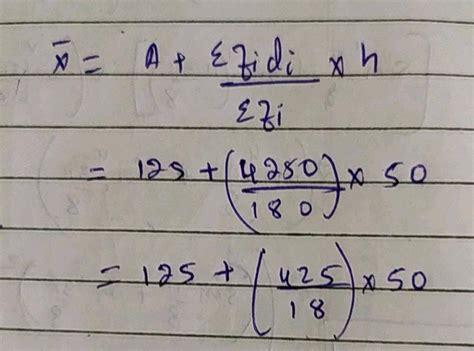 x̄ = A + Σfidi / Σfi × h
= 125 + (4250 / 180) × 50
= 125 + (425 / 18) × 50